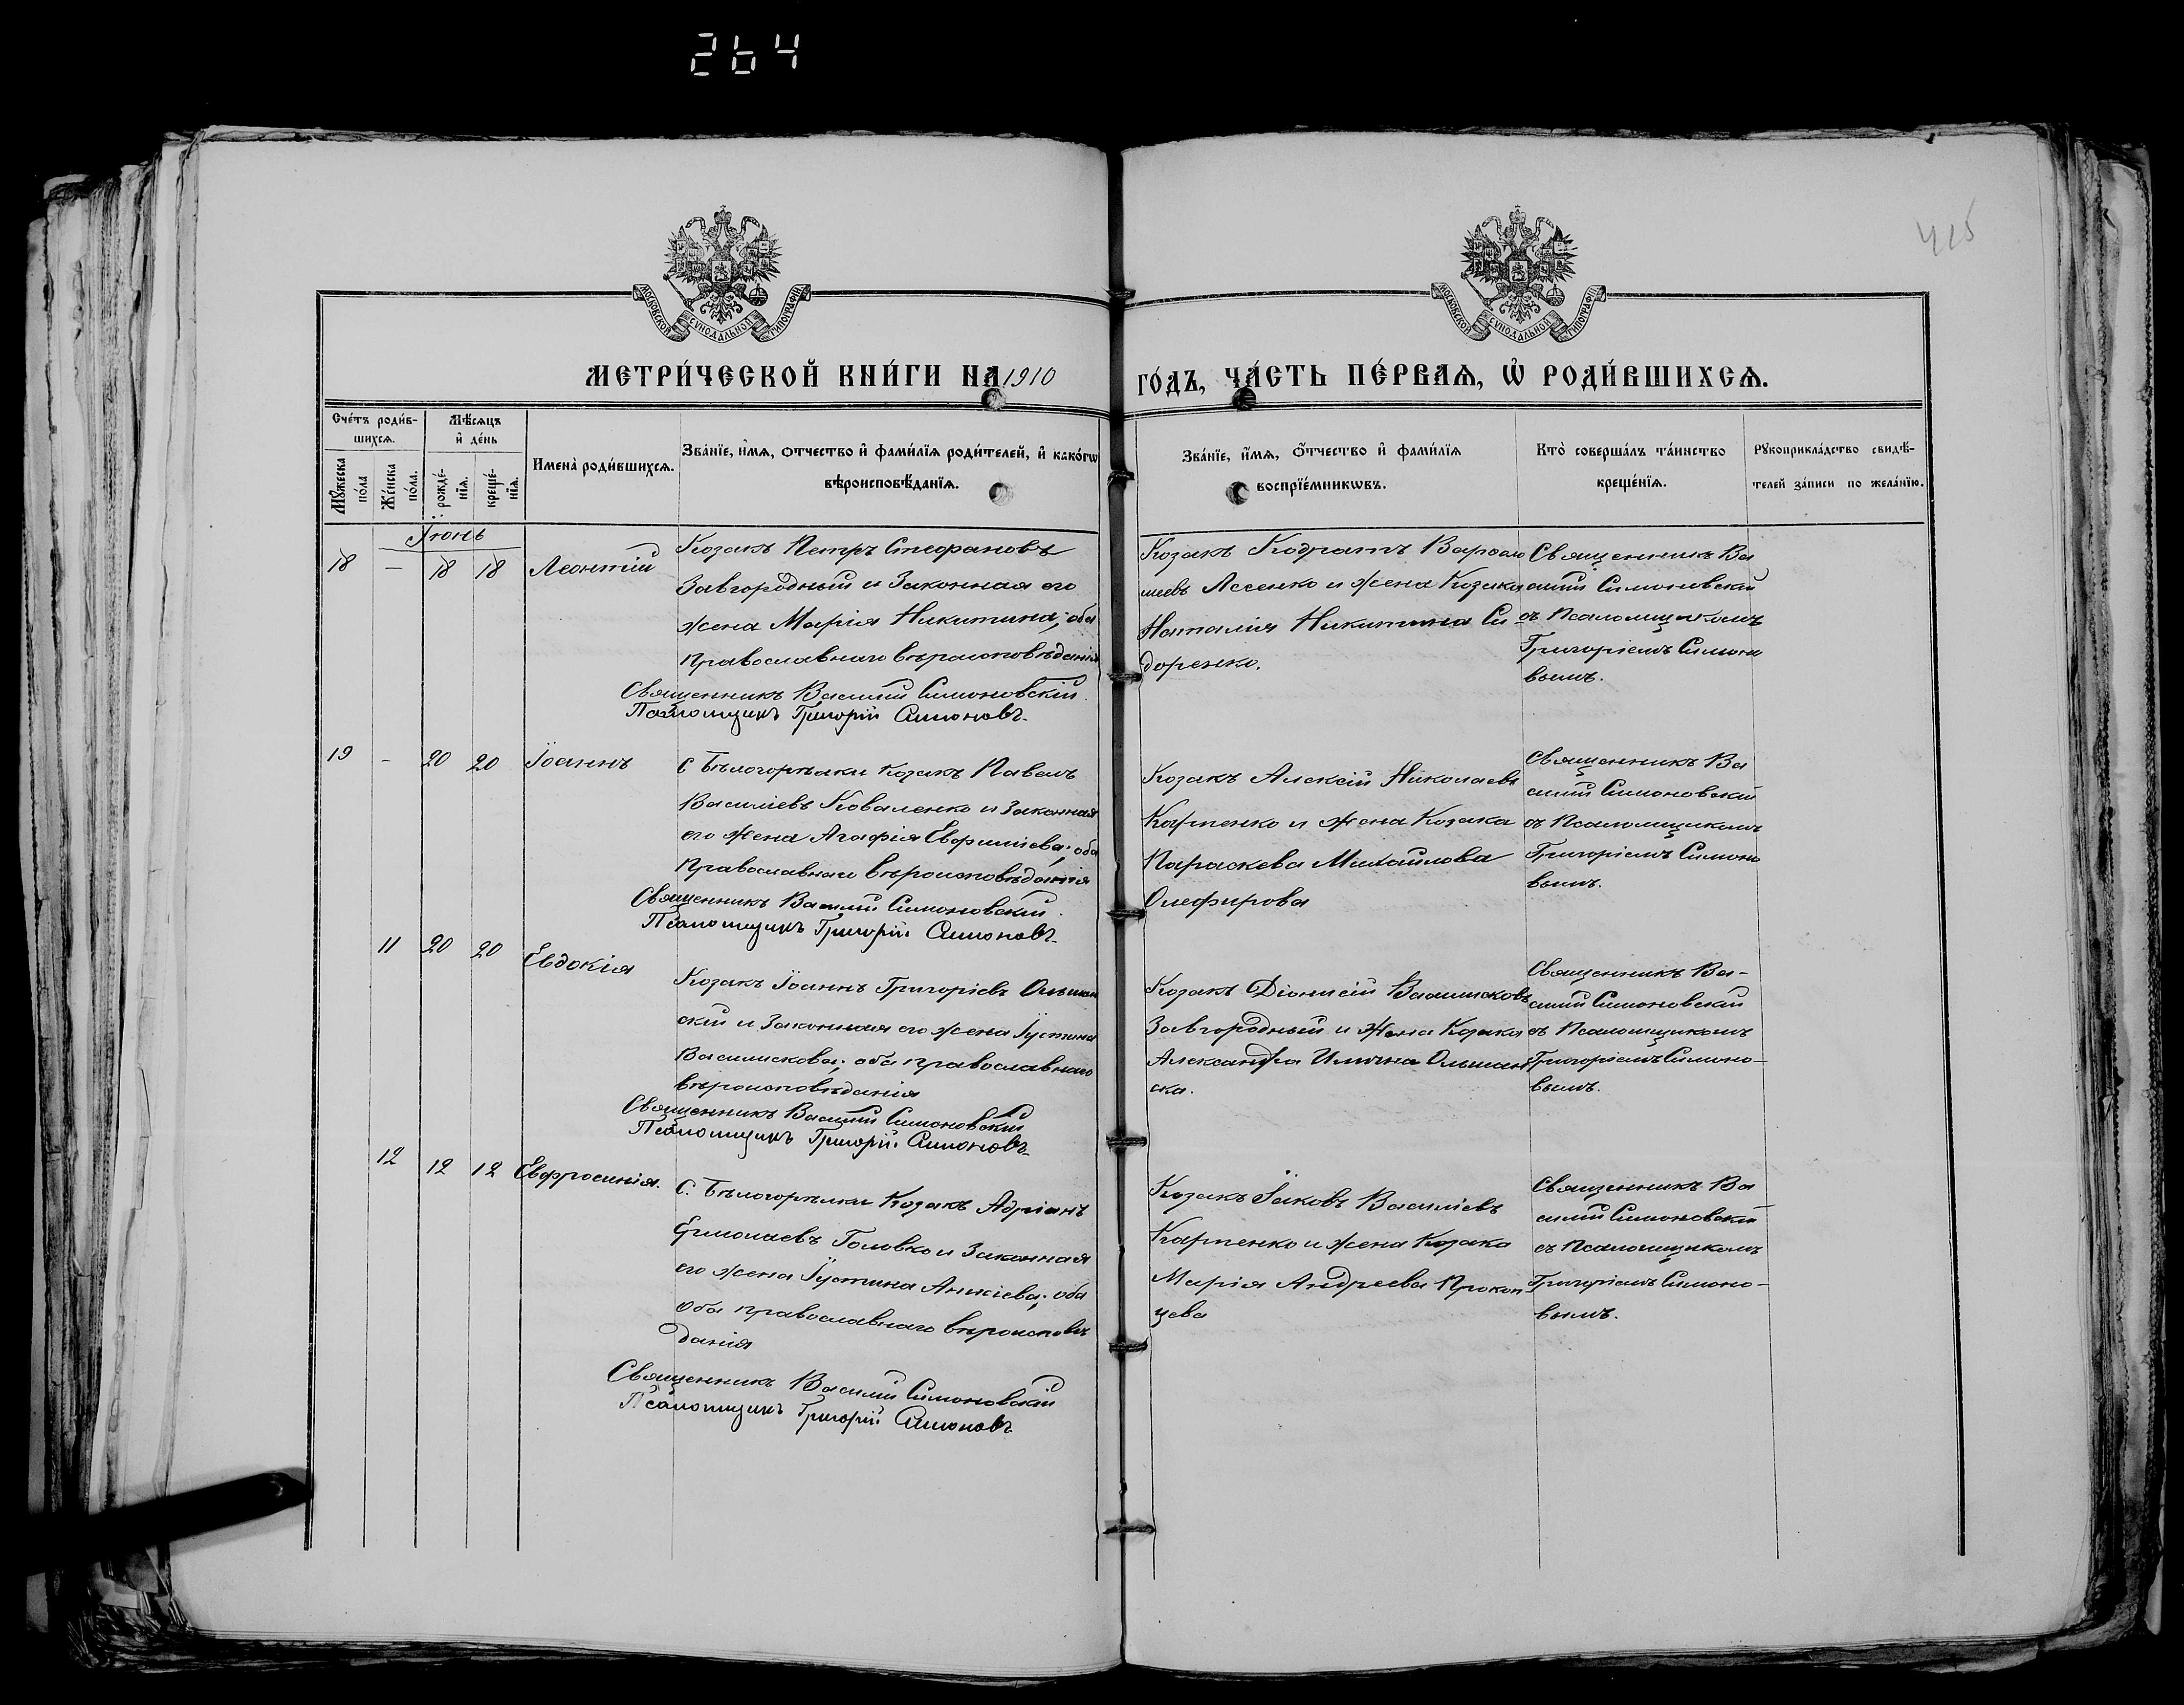 264
415
МОСКОВСКОЙ СѴНОДАЛЬНОЙ ТИПОГРАФІИ
МОСКОВСКОЙ СѴНОДАЛЬНОЙ ТИПОГРАФІИ
МЕТРИ́ЧЕСКОЙ КНИ́ГИ НА 1910 ГО́ДЪ, ЧА́СТЬ ПЕ́РВАѦ, Ѡ҆ РОДИ́ВШИХСѦ.
Сче́тъ роди́в-
шихсѧ.
Мꙋ́жеска по́ла
Же́нска по́ла.
Мѣ́сѧцъ
и҆ де́нь
рожде́-
нїѧ.
креще́-
нїѧ.
Имена̀ роди́вшихсѧ.
Зва́нїе, и҆́мѧ, ѻ҆́тчество и҆ фами́лїѧ роди́телей, и҆ како́гѡ
вѣроисповѣ́данїѧ.
Зва́нїе, и҆́мѧ, ѻ҆́тчество и҆ фами́лїѧ
воспрїе́мникѡвъ.
Кто̀ соверша́лъ та́инство
креще́нїѧ.
Рꙋкоприкла́дство свидѣ́-
телей за́писи по жела́нїю.
Іюнь
18 — 18 18 Леонтій
Козакъ Петръ Стефановъ
Завгородный и законная его
жена Марія Никитина; оба
православнаго вѣроисповѣданія
Священникъ Василій Симоновскій.
Псаломщикъ Григорій Симоновъ.
Козакъ Кодратъ Варфоло
меевъ Лесенко и жена Козака
Наталія Никитина Си-
доренко.
Священникъ Ва
силій Симоновскій
съ Псаломщикомъ
Григоріемъ Симоно
вымъ.
19 - 20 20 Іоаннъ
С Бѣлогорѣлки Козакъ Павелъ
Василіевъ Коваленко и законная
его жена Агафія Евфиміева; оба
Православнаго вѣроисповѣданія
Священникъ Василій Симоновскій.
Псаломщикъ Григорій Симоновъ.
Козакъ Алексій Николаевъ
Карпенко и жена Козака
Параскева Михайлова
Олефирова
Священникъ Ва
силій Симоновскій
съ Псаломщикомъ
Григоріемъ Симоно
вымъ.
11 20 20 Евдокія
Козакъ Іоаннъ Григоріевъ Ольшан
скій и законная его жена Іустина
Василискова; оба православнаго
вѣроисповѣданія
Священникъ Василій Симоновскій
Псаломщикъ Григорій Симоновъ.
Козакъ Діонисій Василисковъ
Завгородный и жена Козака
Александра Ильина Ольшан
ска.
Священникъ Ва-
силій Симоновскій
съ Псаломщикомъ
Григоріемъ Симоно-
вымъ.
12 12 12 Евфросинія.
С. Бѣлогорѣлки Козакъ Адріанъ
Ермолаевъ Головко и законная
его жена Іустина Аникіева; оба
оба православнаго вѣроисповѣ
данія
Священникъ Василій Симоновскій
Псаломщикъ Григорій Симоновъ
Козакъ Іаковъ Василіевъ
Карпенко и жена Козака
Марія Андреева Прокоп
цева
Священникъ Ва
силій Симоновскій
съ Псаломщикомъ
Григоріемъ Симоно-
вымъ.